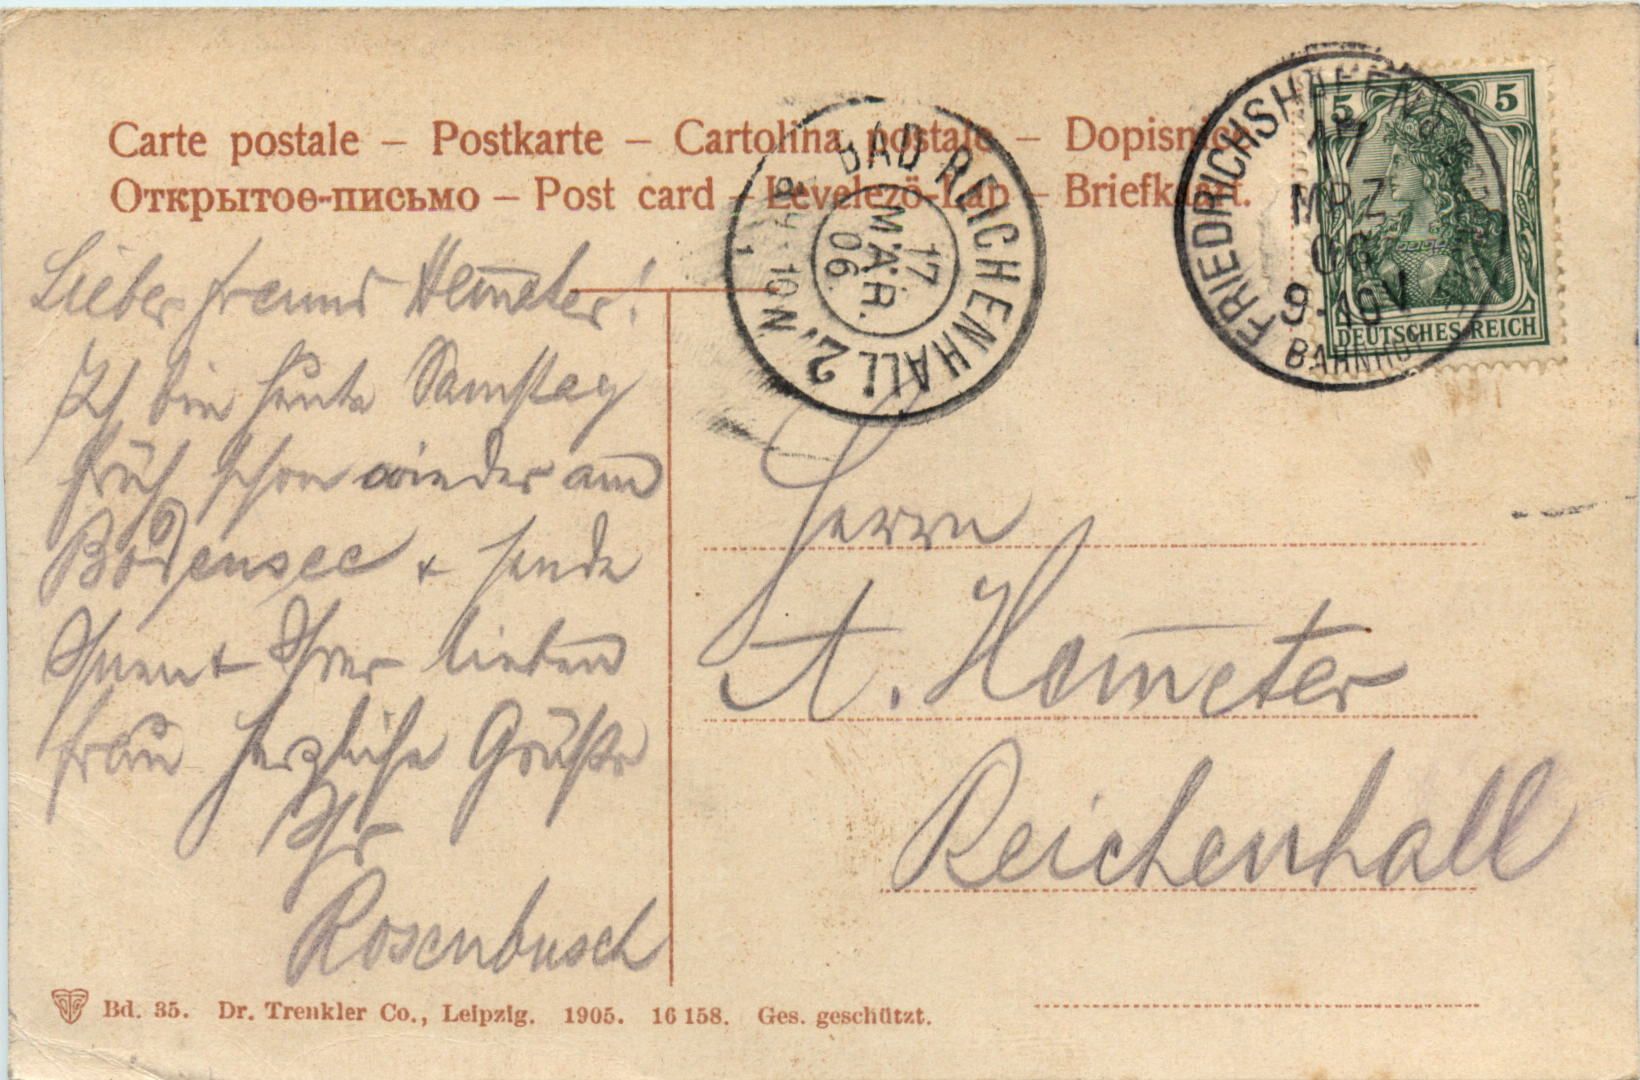 Carte postale – Postkarte – Cartolina postale – Dopisnica
Открытое-письмо – Post card – Levelezö-Lap – Briefkaart.
BAD REICHENHALL 2.
17
MÄR.
06
10N
FRIEDRICHSHAFEN
17
MRZ
06
9-10V
BAHNHOF
5 5
DEUTSCHES REICH
Lieber Freund Hem̅eter!
Ich bin heute Samstag
früh schon wieder am
Bodensee + sende
Ihnen + Ihrer lieben
Frau herzliche Grüße
Ihr
Rosenbusch
Herrn
A. Hom̅eter
Reichenhall
Bd. 35. Dr. Trenkler Co., Leipzig. 1905. 16 158. Ges. geschützt.